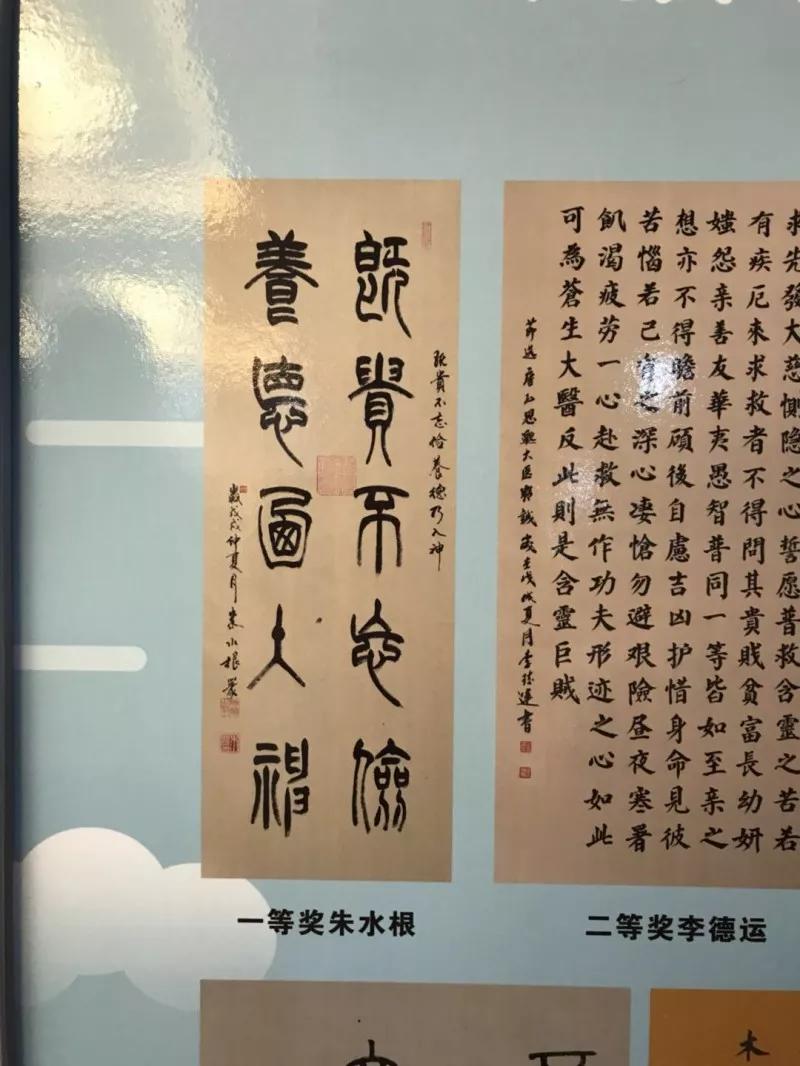 既貴不忘儉
養德乃入神
既貴不忘俭養德乃入神
歲戊戌仲夏月朱水根篆
一等奖朱水根
求先發大慈惻隐之心誓愿普救含靈之苦若
有疾厄來求救者不得問其貴賎貧富長幼妍
媸怨亲善友華夷愚智普同一等皆如至亲之
想亦不得瞻前頋後自慮吉凶护惜身命見彼
苦惱若己有之深心凄愴勿避艰險昼夜寒暑
飢渴疲劳一心赴救無作功夫形迹之心如此
可為蒼生大醫反此則是含靈巨贼
節选唐孙思邈大医精誠歲在戊戌夏月李德運書
二等奖李德运
木